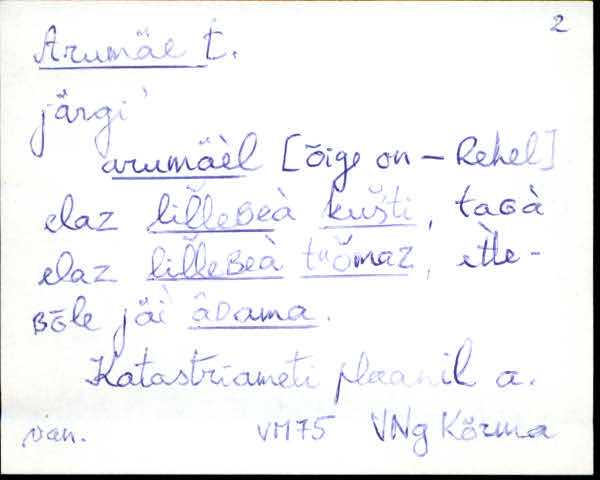 2
Arumäe t.
järgi
arumäèl [õige on - Rehel]
elaz lil̆leʙeà kušti, taɢà
elaz lil̆leʙeà tuŏmaz, ètte-
ʙōle jäi âᴅama.
Katastriameti plaanil a.
van. VM75 VNg Kõrma